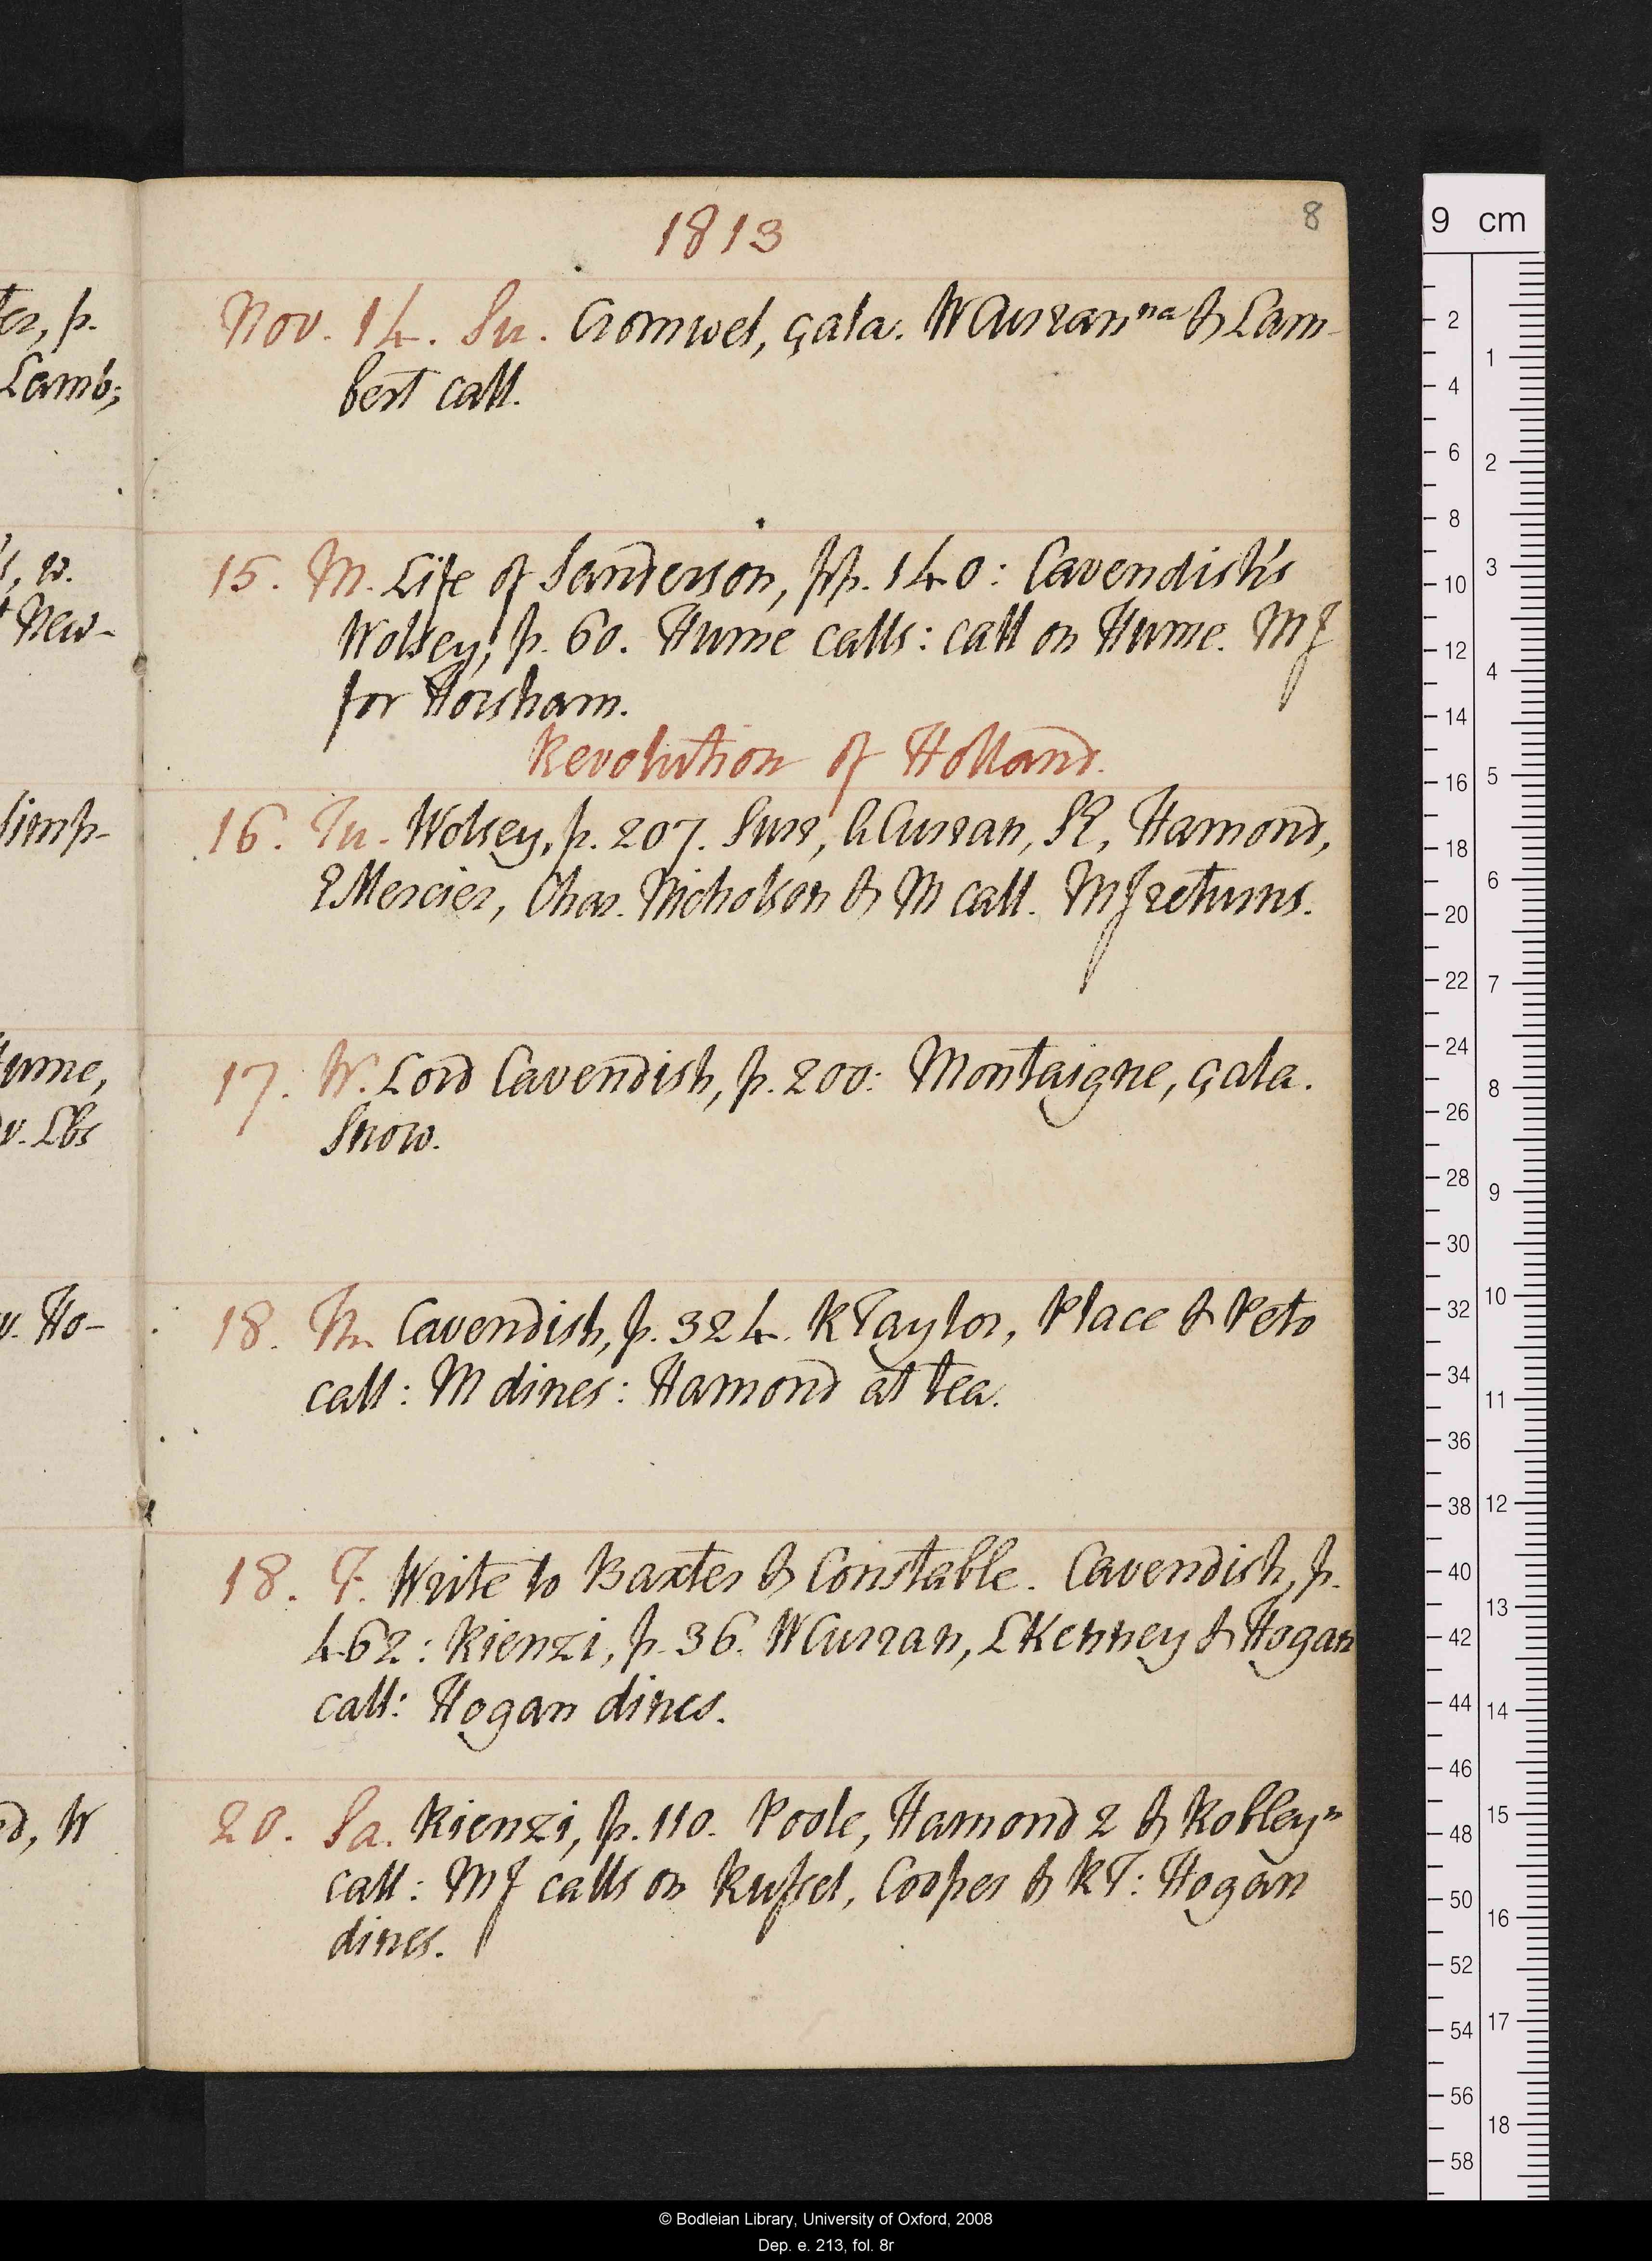 ter, p.
Lamb;
, w.
New-
simp-
Hume,
v. Lbs
v. Ho-
d, W
1813
8
Nov. 14. Su. Cromwel, çala. WCurran na & Lam-
bert call.
15. M. Life of Sanderson, pp. 140: Cavendish's
Wolsey, p. 60. Hume calls: call on Hume. MJ
for Horsham.
Revolution of Holland.
16. Tu. Wolsey, p. 207. Surr, ACurran, SR, Hamond,
PMercier, Char. Nicholson & M call. MJ returns.
17. W. Lord Cavendish, p. 200: Montaigne, çala.
Snow.
18. Th. Cavendish, p. 324. RTaylor, Place & Peto
call: M dines: Hamond at tea.
18. F. Write to Baxter & Constable. Cavendish, p.
462: Rienzi, p. 36. WCurran, LKenney & Hogan
call: Hogan dines.
20. Sa. Rienzi, p. 110. Poole, Hamond 2 & Robley n
call: MJ calls on Russel, Cooper & RT: Hogan
dines.
9 cm
2
4
6
8
10
12
14
16
18
20
22
24
26
28
30
32
34
36
38
40
42
44
46
48
50
52
54
56
58
1
2
3
4
5
6
7
8
9
10
11
12
13
14
15
16
17
18
© Bodleian Library, University of Oxford, 2008
Dep. e. 213, fol. 8r